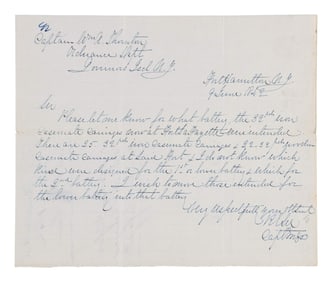 Captain Wm A. Thornton
Ordnance Dept
Governors Isld N.Y.
Fort Hamilton N.Y.
9 June 1842
Sir
Please let me know for what battery the 32 pdr iron
casemate carriages now at Fort Lafayette were intended
There are 35 32 pdr iron casemate carriages &
casemate carriages at same Fort & I do not know which
kind were designed for the 1st or lower battery & which for
the 2nd battery. I wish to move those intended for
the lower battery into that battery
Very respectfully your obt servt
R E Lee
Capt Engs